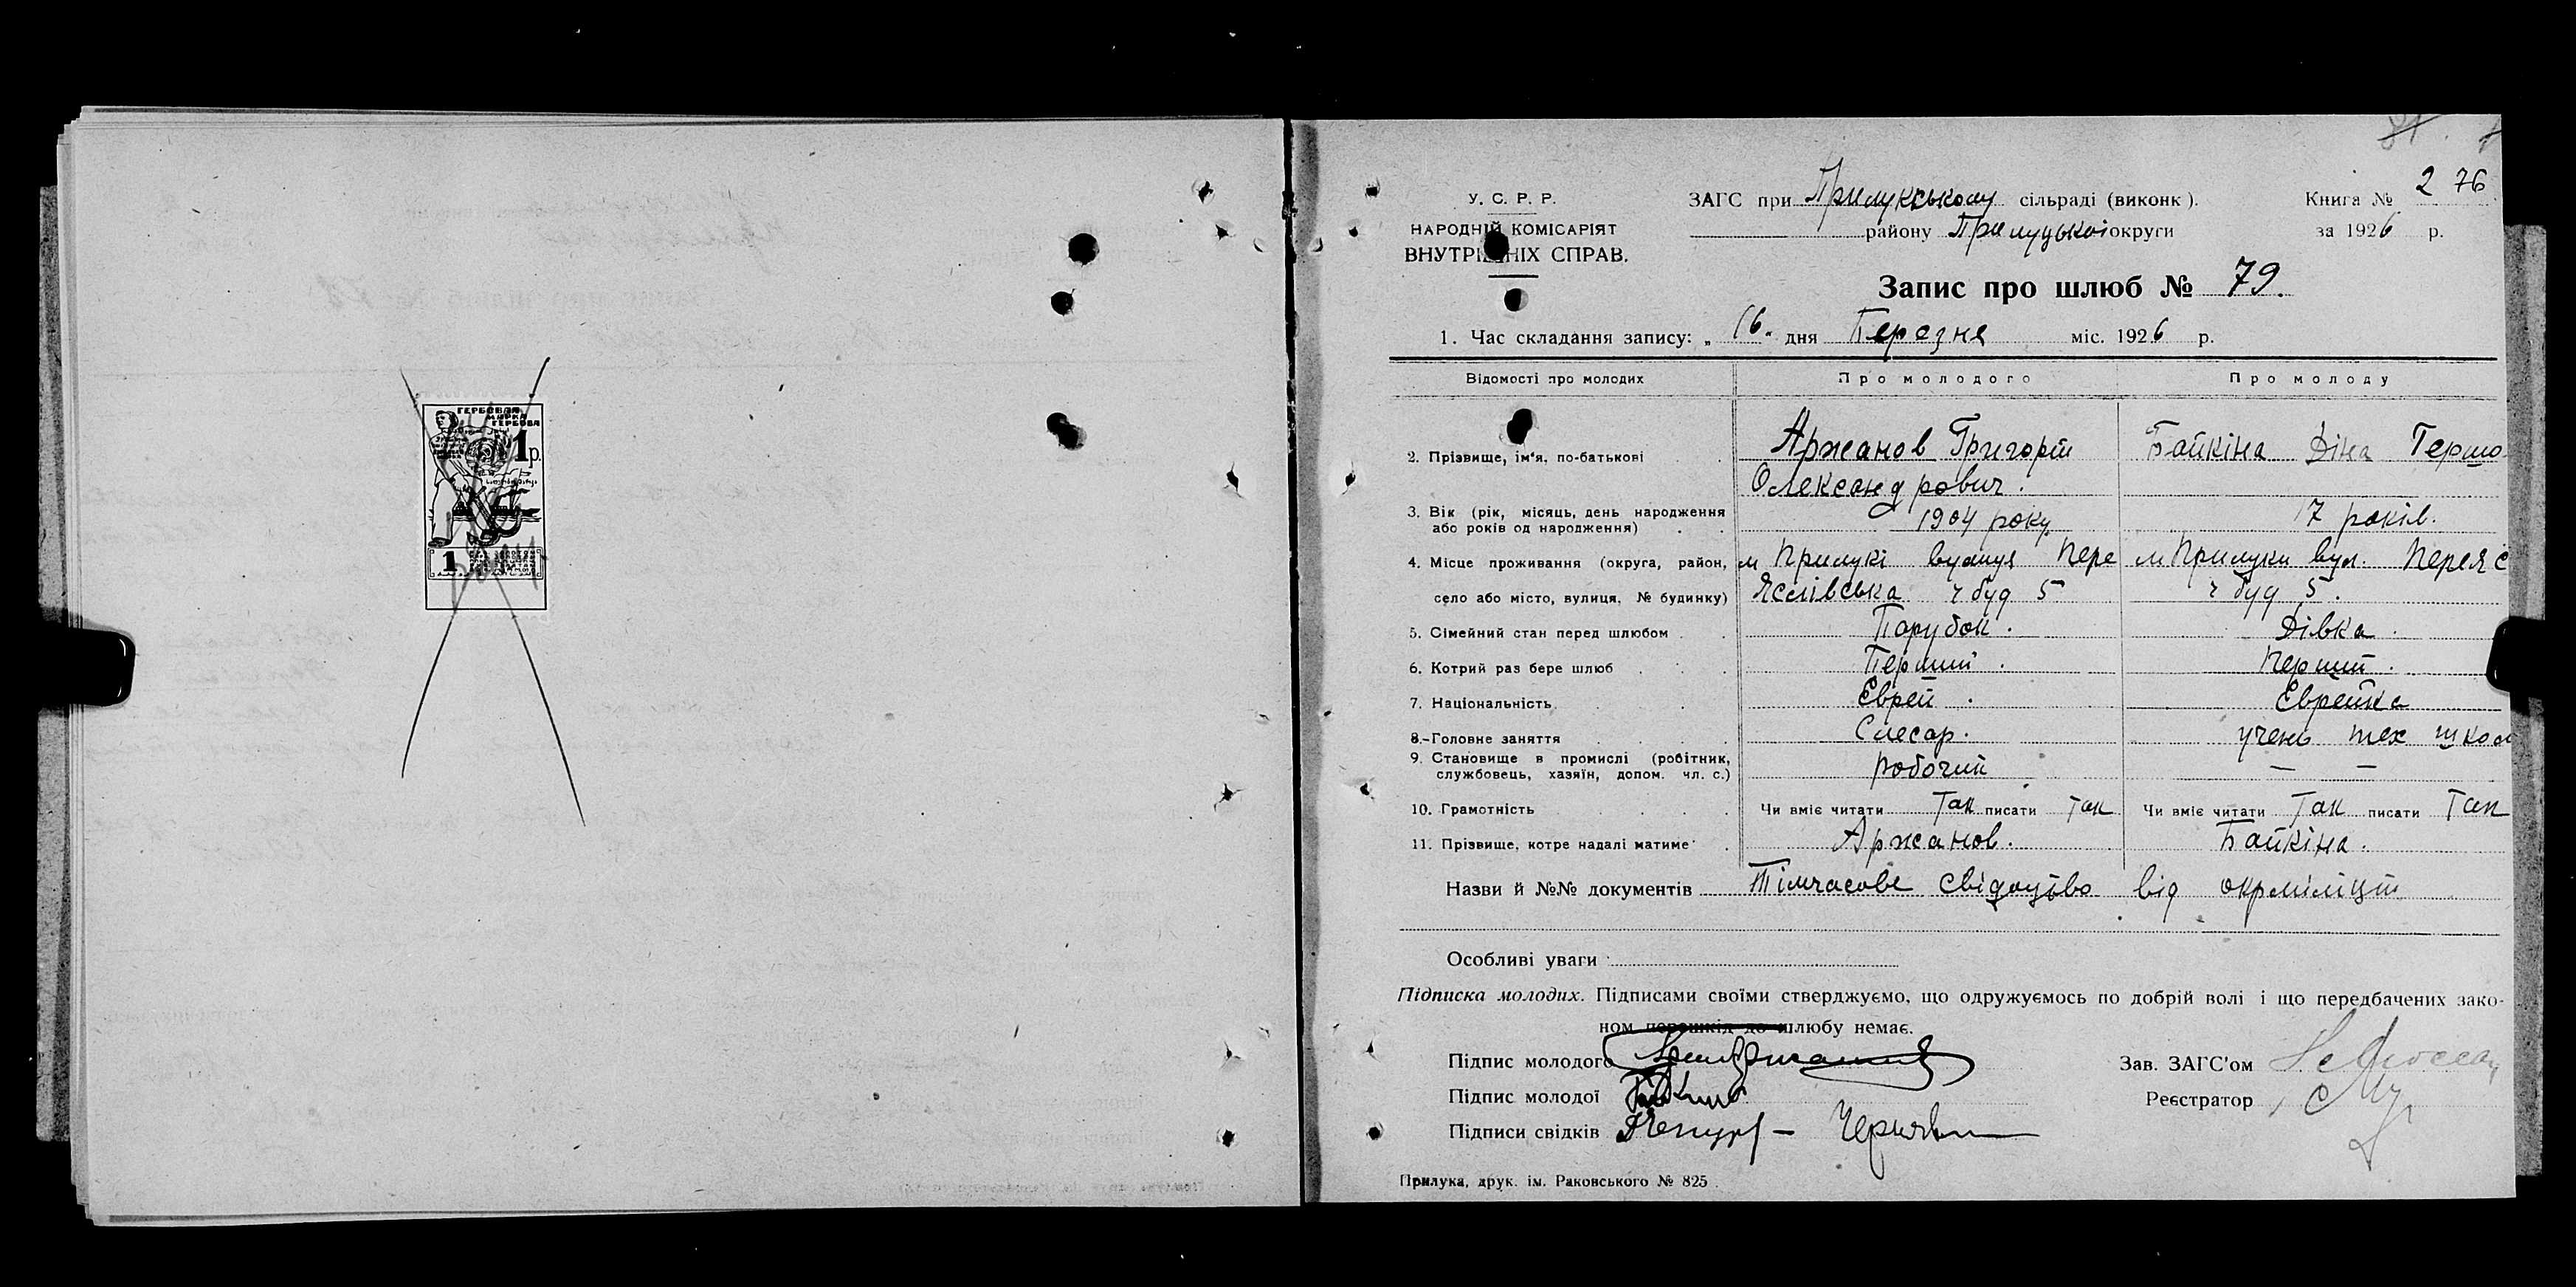 ГЕРБОВАЯ
МАРКА
ГЕРБОВА
1 р.
1
2 76
У. С. Р. Р.
НАРОДНІЙ КОМІСАРІЯТ
ВНУТРІШНІХ СПРАВ.
ЗАГС при Прилукському сільраді (виконк).
району Прилуцької округи
Книга №
за 1926 р.
Запис про шлюб № 79.
1. Час складання запису: „16" дня Березня міс. 1926 р.
Відомості про молодих Про молодого Про молоду
2. Прізвище, ім'я, по-батькові Аржанов Григорій Байкіна Діна Гершо
Олександрович.
3. Вік (рік, місяць, день народження
або років од народження) 1904 року 17 років.
4. Місце проживання (округа, район, м Прилукі вулиця Пере м Прилуки вул. Переяс
село або місто, вулиця, № будинку) Яслівська ч буд 5 ч буд 5.
5. Сімейний стан перед шлюбом Парубок. Дівка.
6. Котрий раз бере шлюб Перший. Перший.
7. Національність Єврей. Єврейка
8. Головне заняття Слесар. учень тех школ
9. Становище в промислі (робітник,
службовець, хазяїн, допом. чл. с.) робочий — —
10. Грамотність Чи вміє читати Так писати Так Чи вміє читати Так писати Так
11. Прізвище, котре надалі матиме Аржанов. Байкіна.
Назви й №№ документів Тімчасове свідоцтво від окрміліції
Особливі уваги
Підписка молодих. Підписами своїми стверджуємо, що одружуємось по добрій волі і що передбачених зако-
ном перешкід до шлюбу немає.
Підпис молодого
Зав. ЗАГС'ом
Підпис молодої
Реєстратор
Підписи свідків
Прилука, друк. ім. Раковського № 825